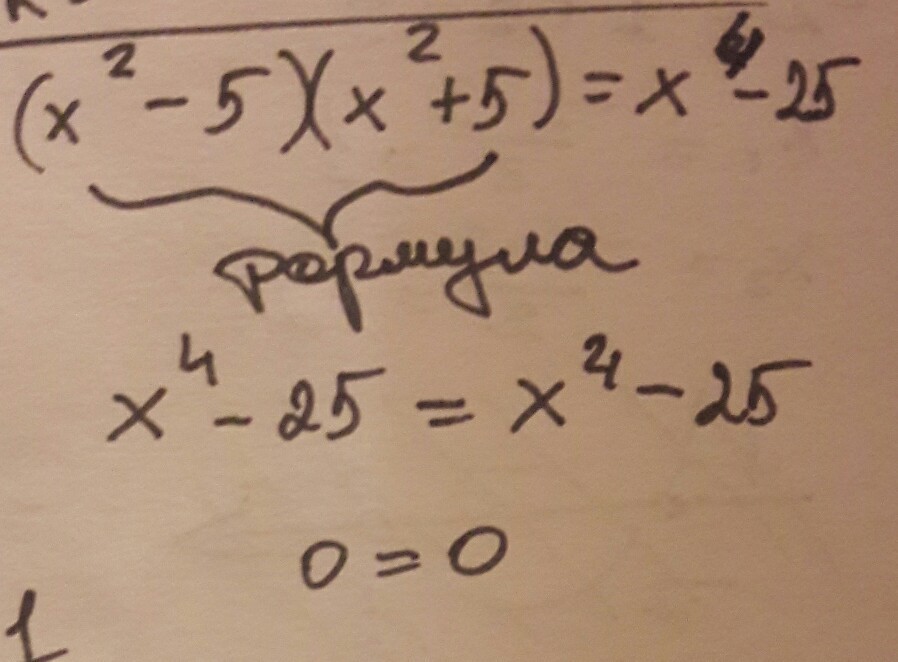 (x² - 5)(x² + 5) = x⁴ - 25
формула
x⁴ - 25 = x⁴ - 25
0 = 0
1